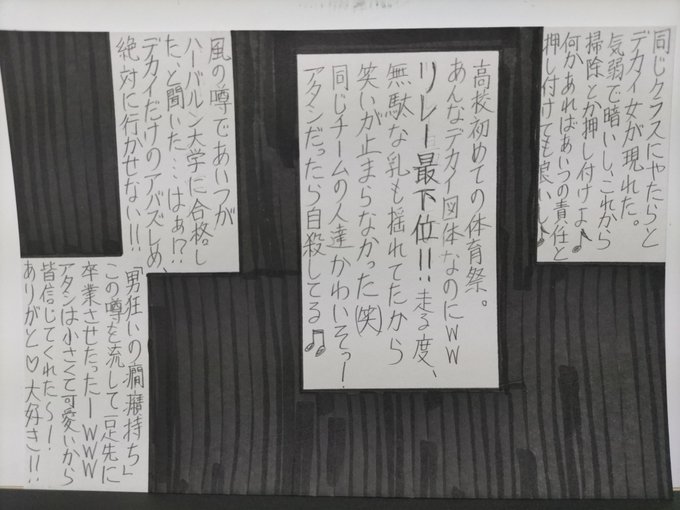 同じクラスにやたらと
デカイ女が現れた。
気弱で暗いし、これから
掃除とか押し付けよ♪
何かあればあいつの責任と
押し付けても良いし♪
高校初めての体育祭。
あんなデカイ図体なのにww
リレー最下位!!走る度、
無駄な乳も揺れてたから
笑いが止まらなかった(笑)
同じチームの人達かわいそっー!
アタシだったら自殺してる♫
風の噂であいつが
ハーバルン大学に合格し
た、と聞いた…はぁ!?
デカイだけのアバズレめ、
絶対に行かせない!!!
「男狂いの癇癪持ち」
この噂を流して一足先に
卒業させたったーwww
アタシは小さくて可愛いから
皆信じてくれた～!
ありがと♡大好き!!